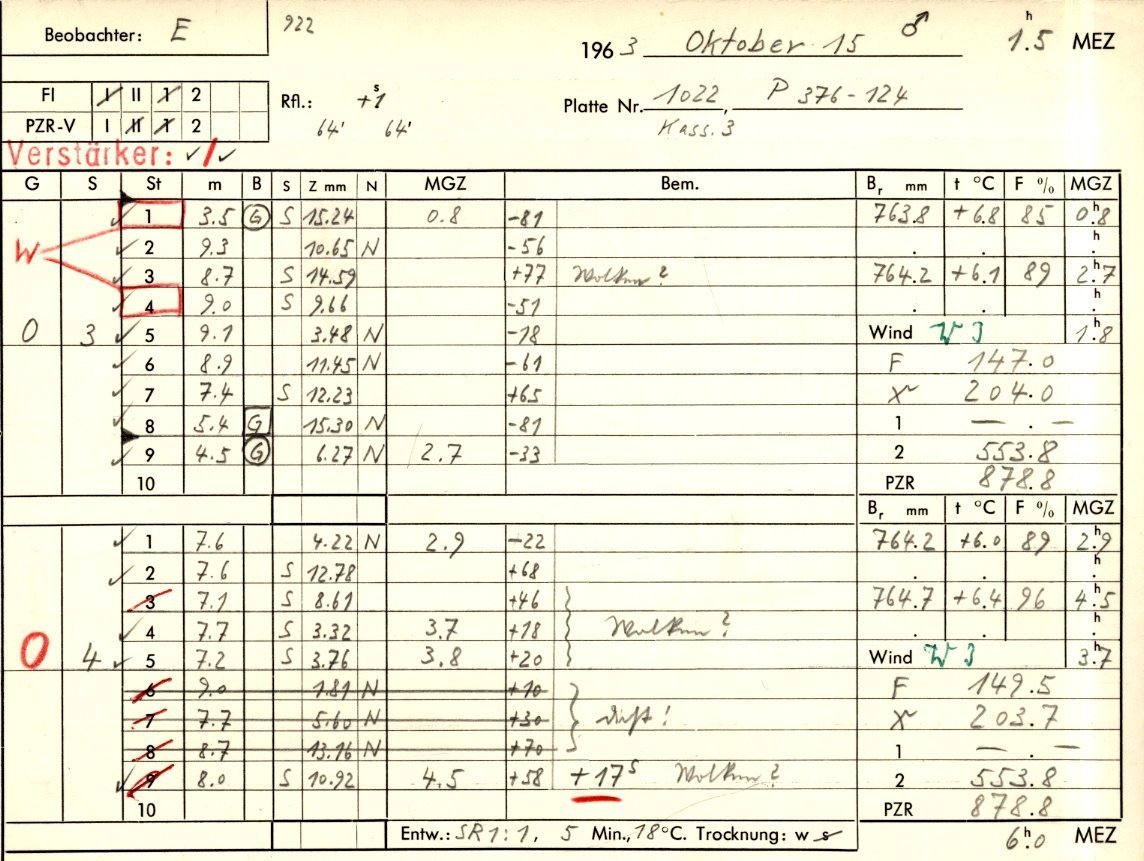 Beobachter: E 922 1963 Oktober 15 ♂ 1.5 h MEZ
FI I II 1 2 Rfl.: +1 s Platte Nr. 1022, P 376-124
PZR-V I II 1 2 64' 64' Kass. 3
Verstärker: ✓/✓
G S St m B S Z mm N MGZ Bem. Br mm t °C F % MGZ
1 3.5 G S 15.24 0.8 -81 763.8 +6.8 85 0.8 h
W 2 9.3 10.65 N -56 . . . h
3 8.7 S 14.59 +77 Wolken? 764.2 +6.1 89 2.7 h
4 9.0 S 9.66 -51 . . . h
0 3 5 9.1 3.48 N -18 Wind W 3 1.8 h
6 8.9 11.45 N -61 F 147.0
7 7.4 S 12.23 +65 X 204.0
8 5.4 G 15.30 N -81 1 — . —
9 4.5 G 6.27 N 2.7 -33 2 553.8
10 PZR 878.8
Br mm t °C F % MGZ
1 7.6 4.22 N 2.9 -22 764.2 +6.0 89 2.9 h
2 7.6 S 12.78 +68 . . . h
3 7.1 S 8.61 +46 764.7 +6.4 96 4.5 h
4 7.7 S 3.32 3.7 +18 Wolken? . . . h
0 4 5 7.2 S 3.76 3.8 +20 Wind W 3 3.7 h
6 9.0 1.81 N +10 F 149.5
7 7.7 5.60 N +30 X 203.7
8 8.7 13.16 N +70 1 — . —
9 8.0 S 10.92 4.5 +58 +17 s Wolken? 2 553.8
10 PZR 878.8
Entw.: SR 1:1, 5 Min., 18°C. Trocknung: w s 6.0 h MEZ